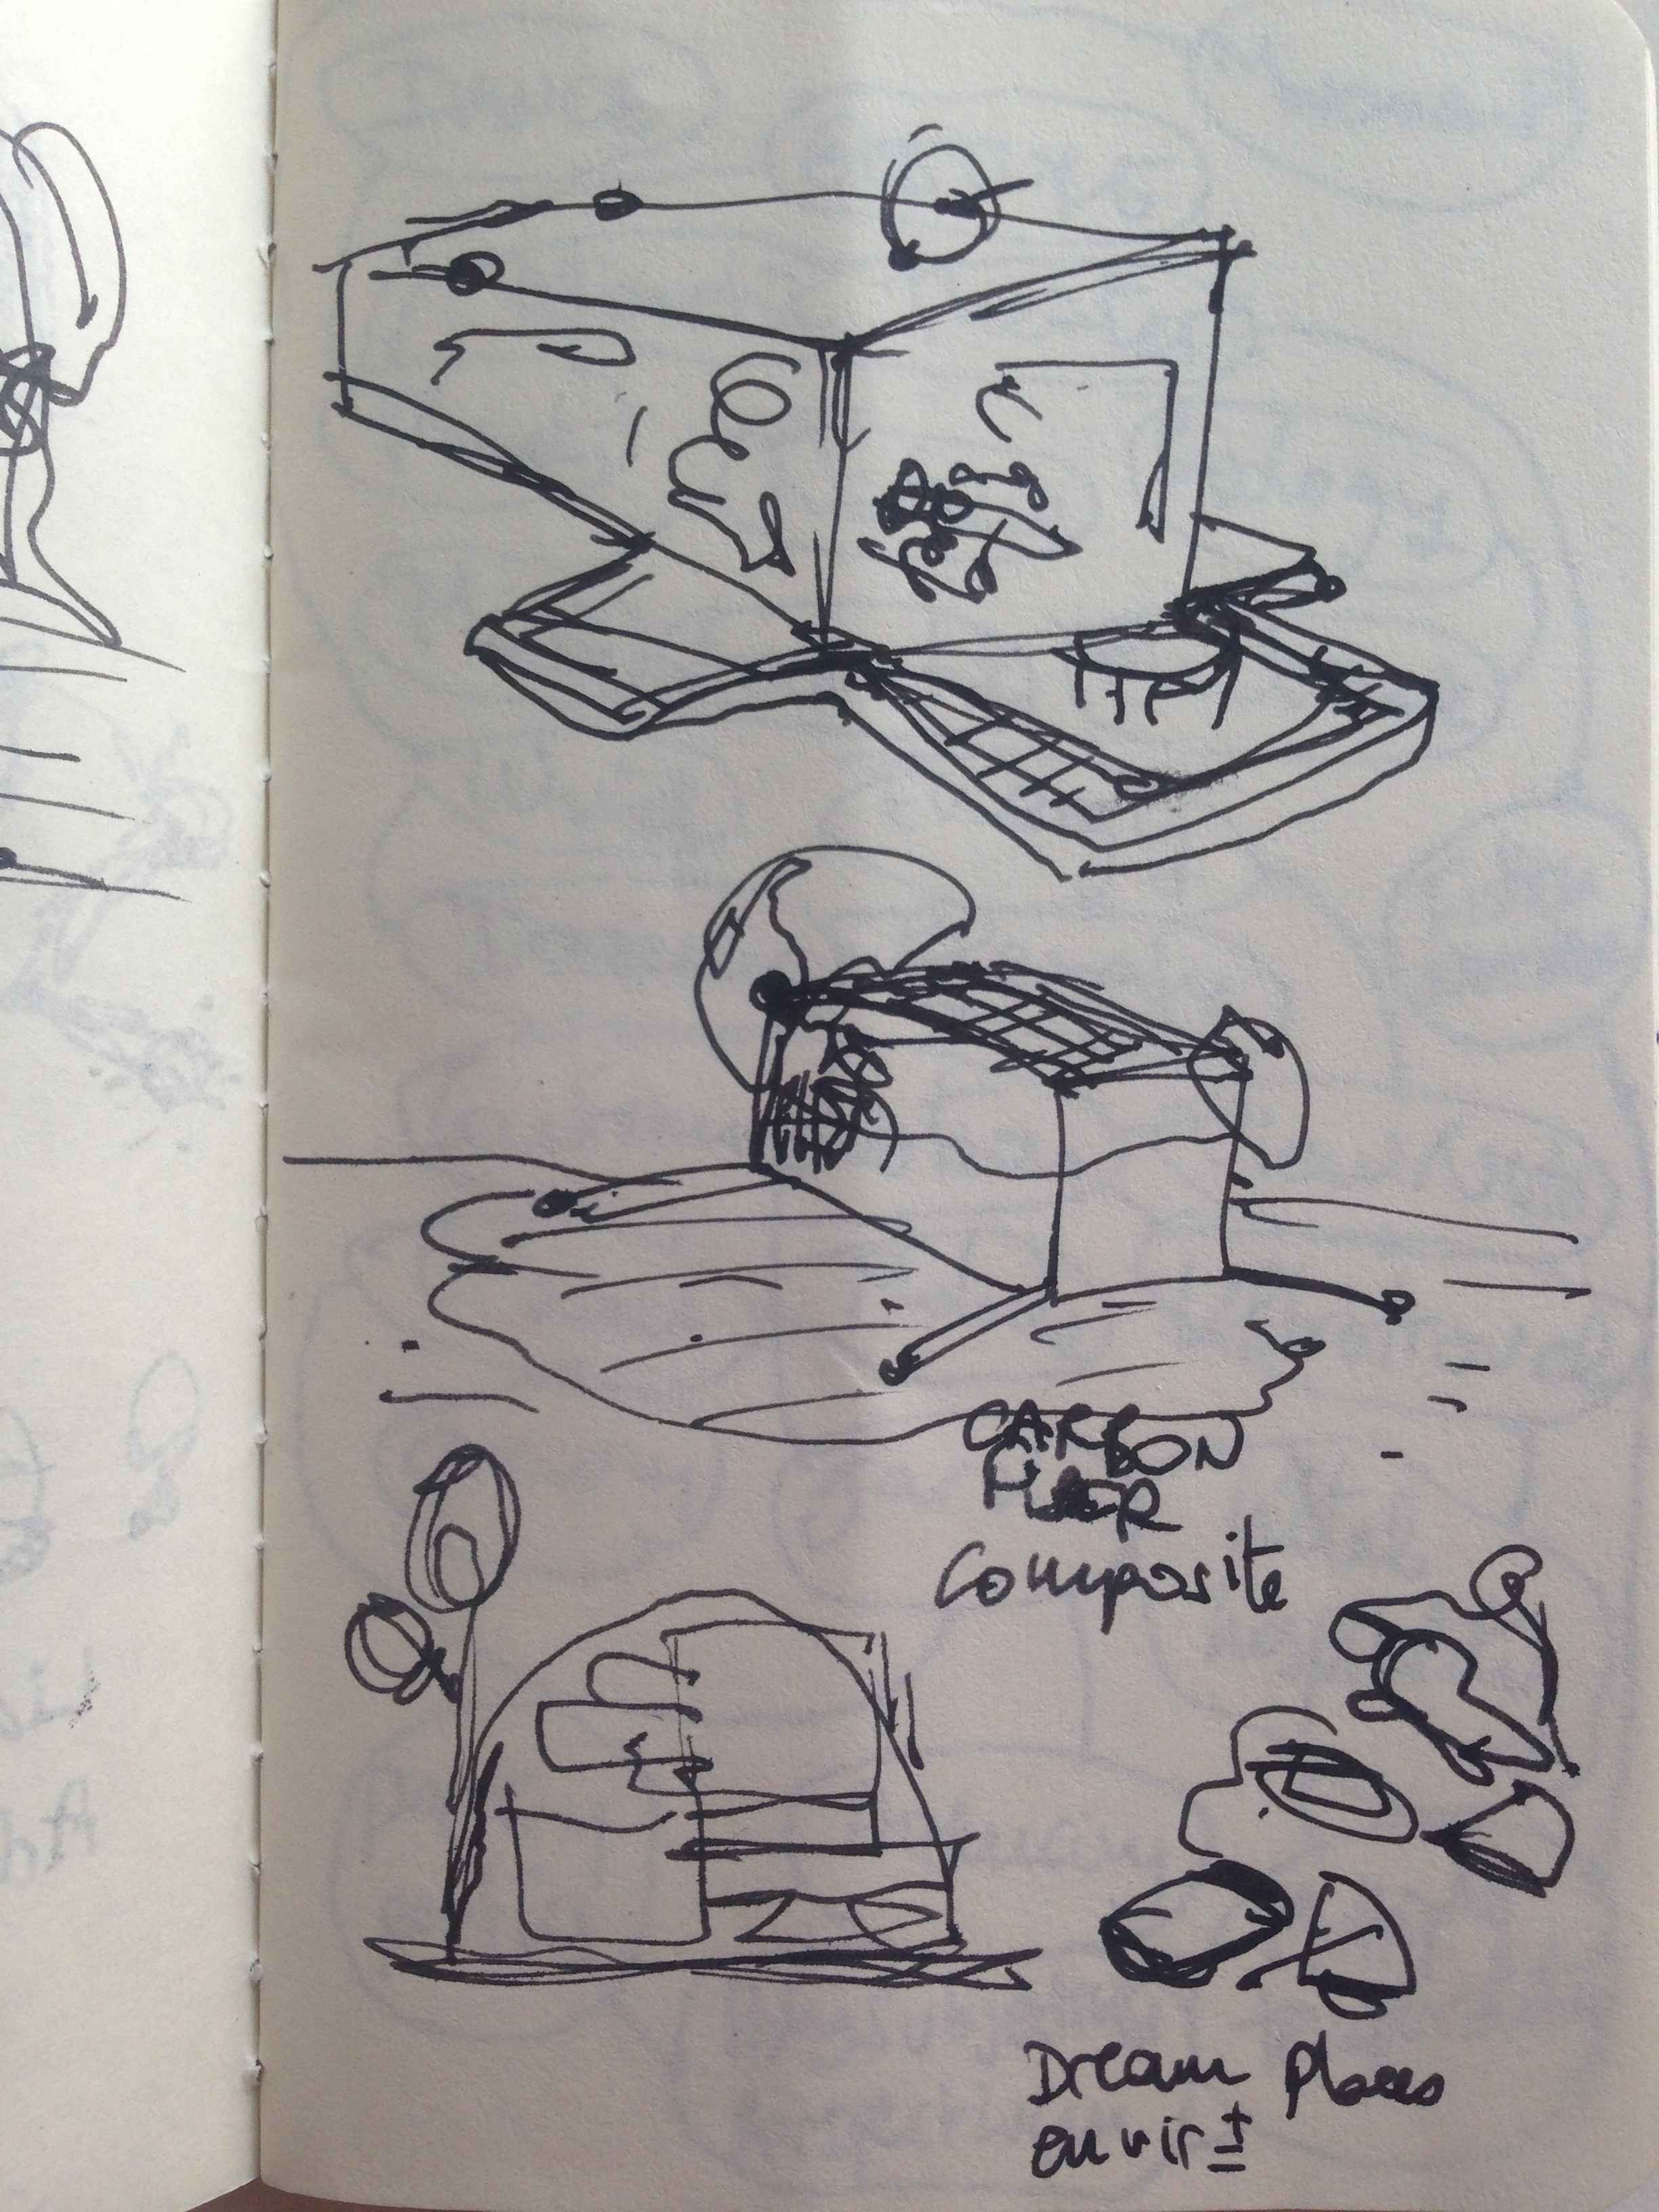 CARBON
FIBER
composite
Dream places
envir±